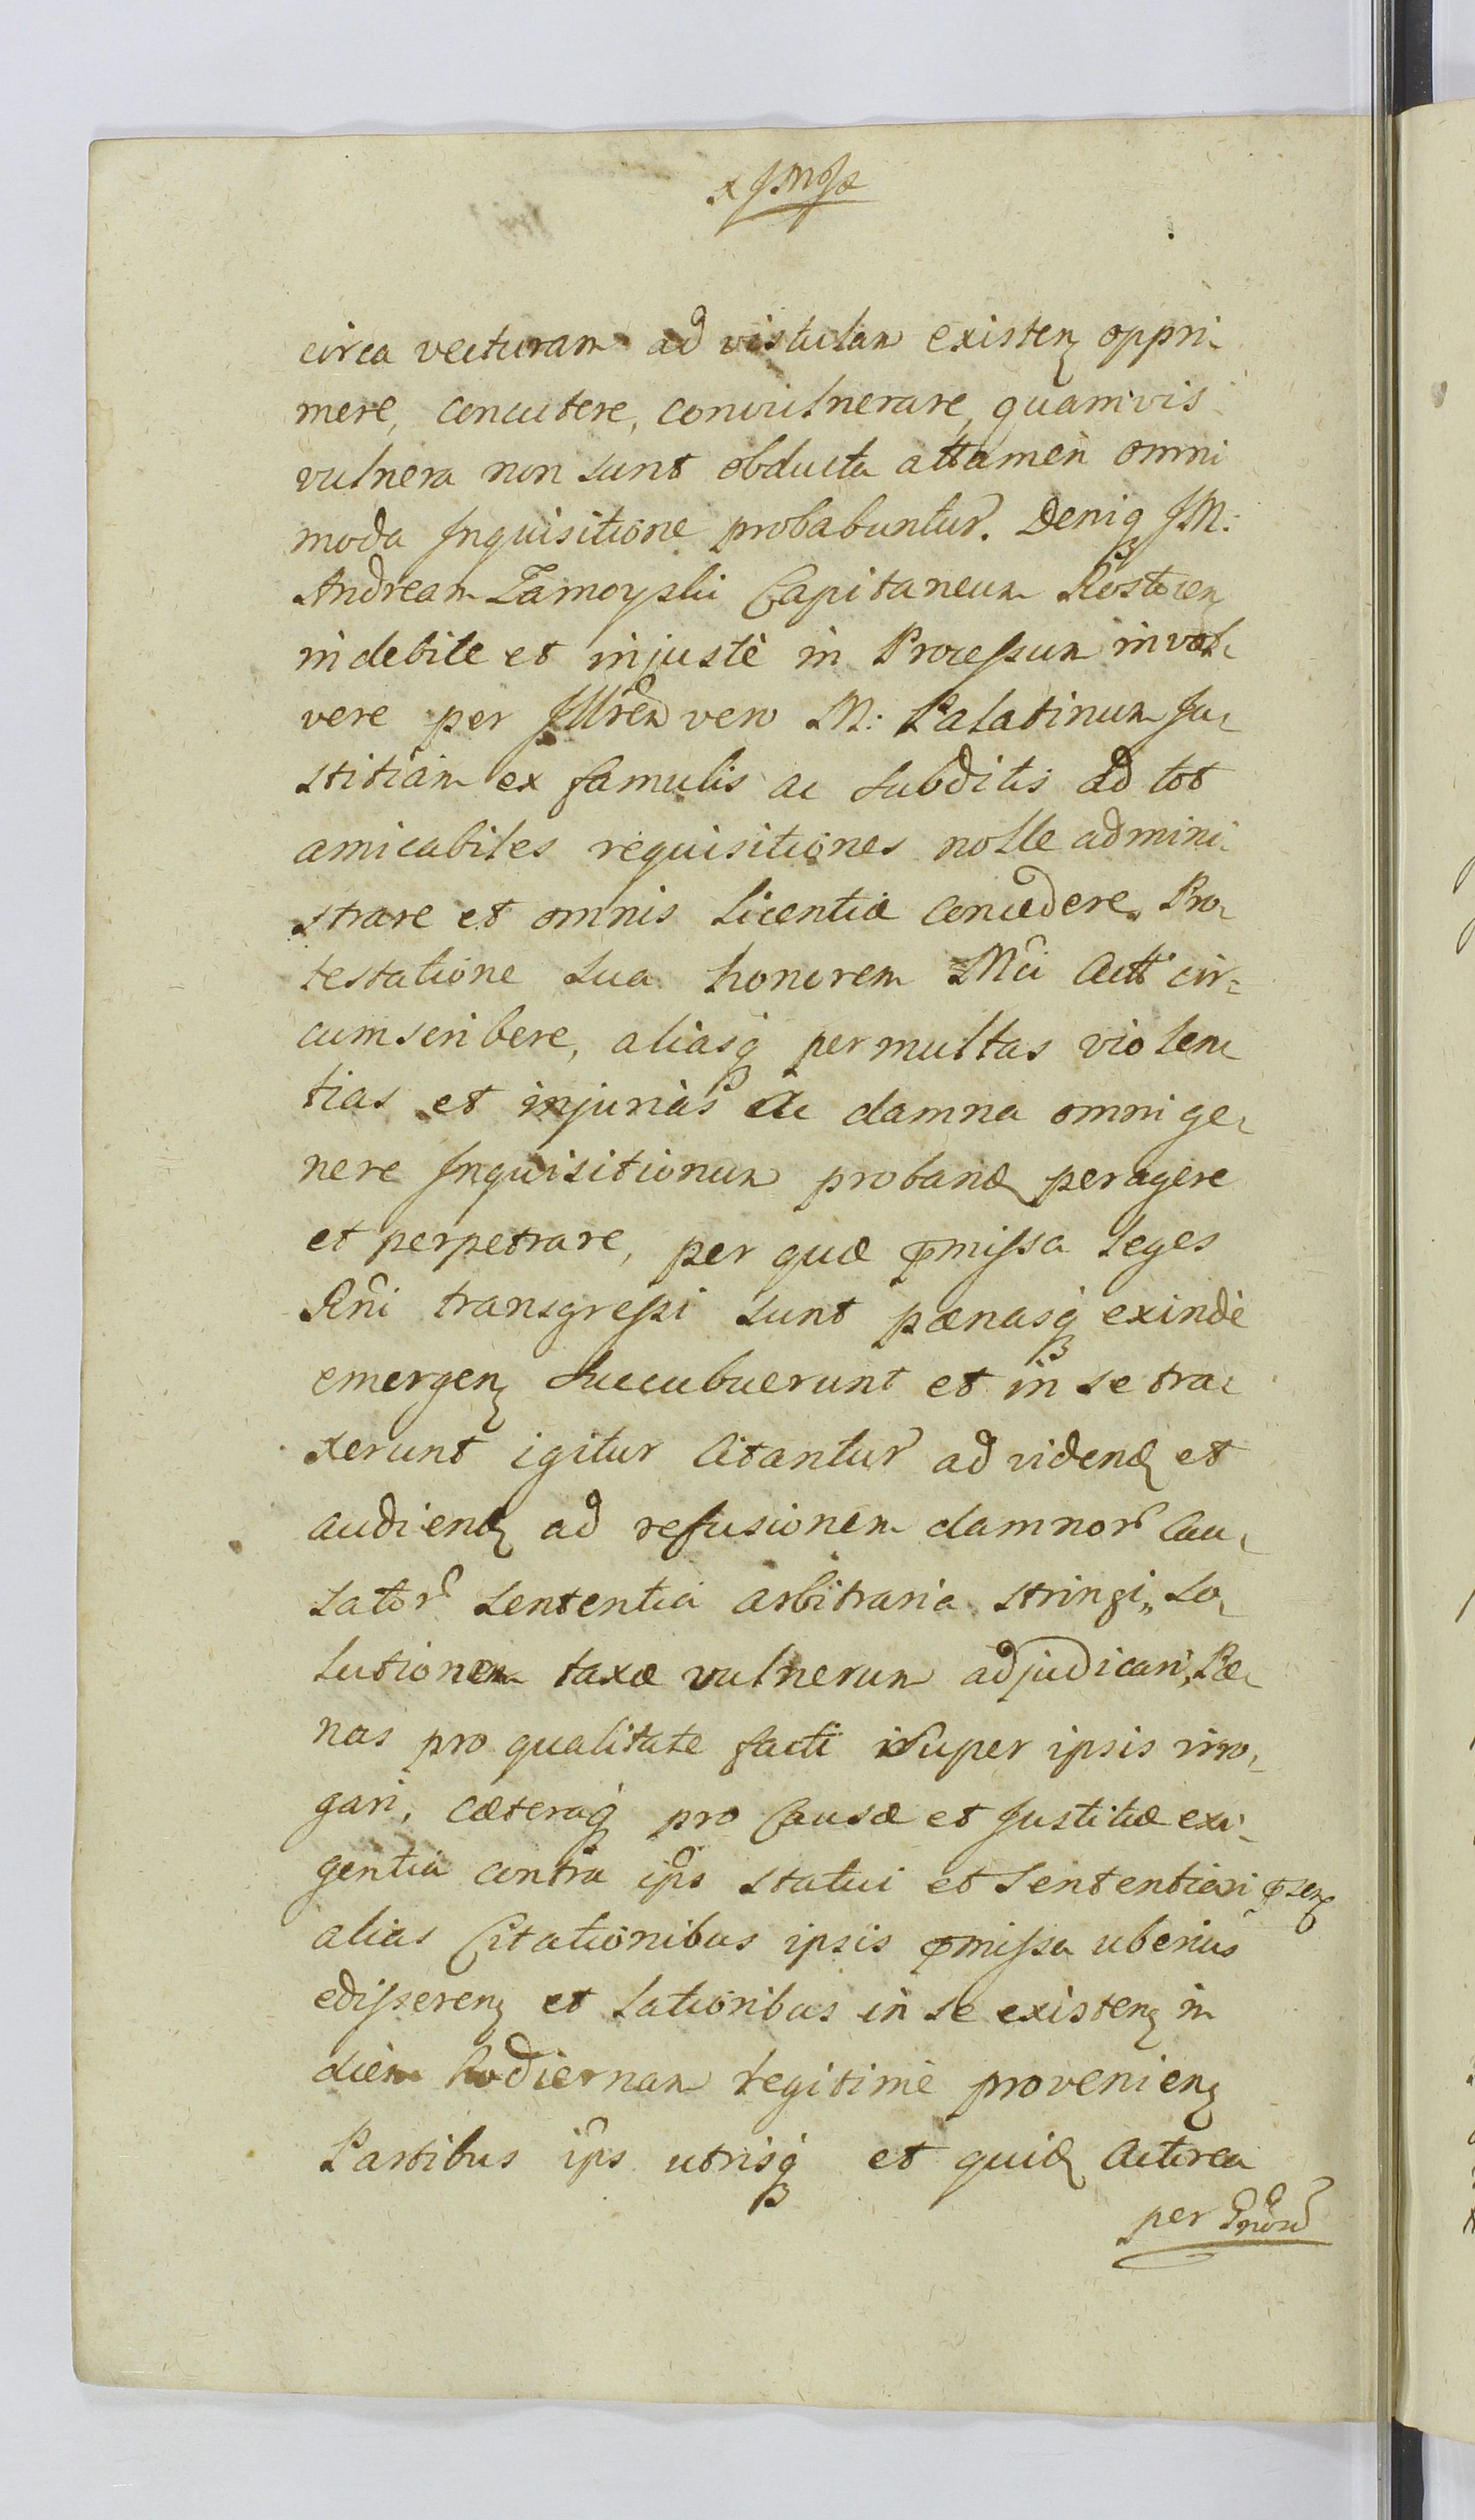 circa vecturam ad vistulam existen oppri-
mere, concutere, convulnerare, quamvis
vulnera non sunt obducta attamèn omni
moda Inquisitione probabuntur. Deniq JM:
Andream Zamoyski Capitaneum Rostocen
indebite et injustè in Processum invol-
vere per Jllrem vero M: Palatinum Ju-
stitiam ex famulis ac subditis ad tot
amicabiles requisitiones nolle admini-
strare et omnis licentiæ concedere. Pro-
testatione sua honorem Mci Actt cir-
cumscribere, aliasq permultas violen-
tias et injurias ac damna omni ge-
nere Inquisitionum proband peragere
et perpetrare, per quæ pmissa Leges
Rni transgressi sunt pænasq exindè
emergen succubuerunt et in se tra-
xerunt igitur Citantur ad vidend et
audiend ad refusionem damnor Cau-
sator sententia arbitraria stringi, So-
lutionem taxæ vulnerum adjudicari, Pæ-
nas pro qualitate facti super ipsis irro-
gari, cæteraq pro Causæ et Justitiæ exi-
gentia contra ips statui et sententiari psen
alias Citationibus ipsis pmissa uberius
edisseren et lationibus in se existen in
diem hodiernam legitimè provenien
Partibus ips utrisq et quid Actorea
per